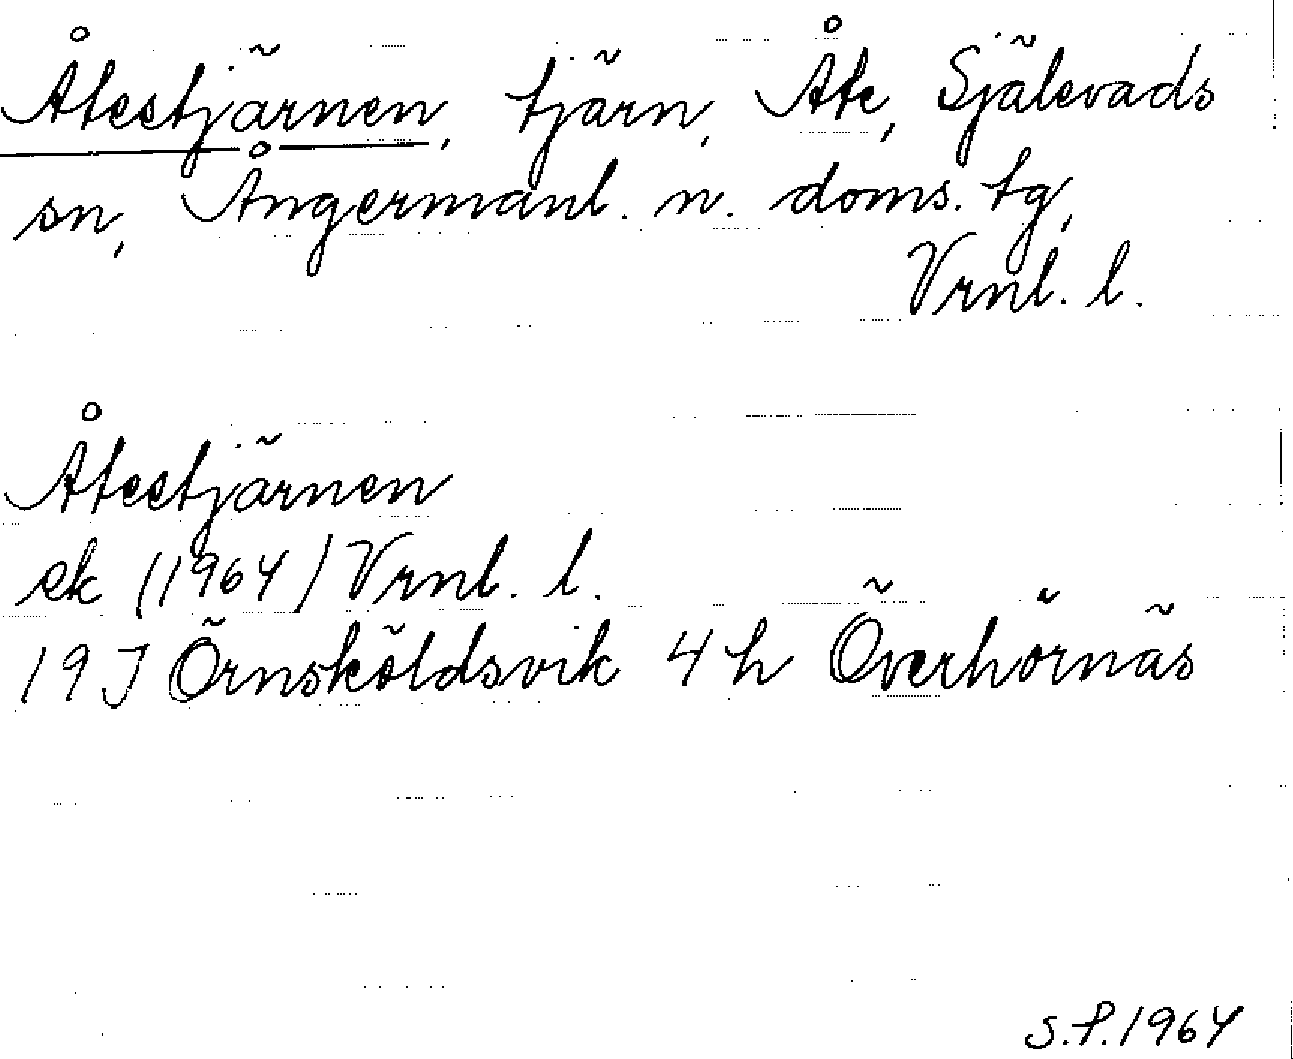 Åtestjärnen, tjärn, Åte, Själevads
sn, Ångermanl. n. doms. tg,
Vrnl. l.
Åtestjärnen
ek (1964) Vrnl. l.
19J Örnsköldsvik 4h Överhörnäs
S.P. 1964